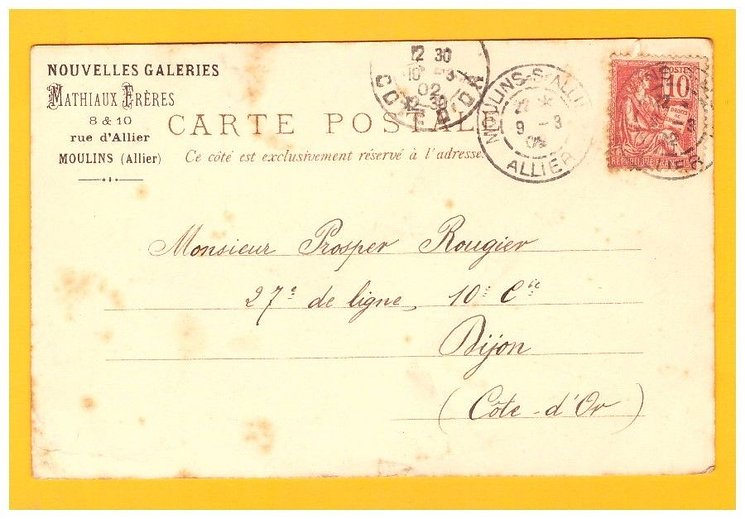 NOUVELLES GALERIES
MATHIAUX FRÈRES
8 & 10
rue d'Allier
MOULINS (Allier)
CARTE POSTALE
Ce côté est exclusivement réservé à l'adresse.
12 30
10 -3
02
12 30
COTE-D'OR
MOULINS-S-ALLIER
9 - 3
ALLIER
POSTES
10
Monsieur Prosper Rougier
27e de ligne, 10e Cie
Dijon
(Côte-d'Or)